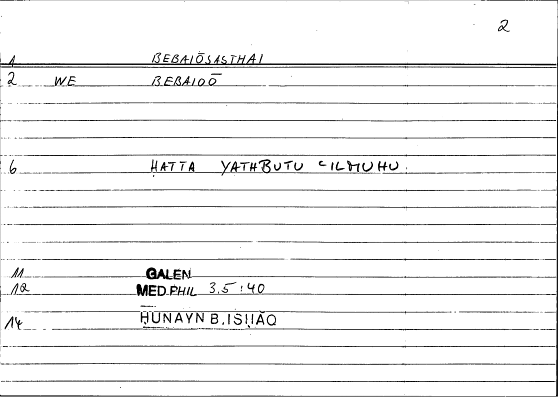 2
1 BEBAIŌSASTHAI
2 WE BEBAIOŌ
6 ḤATTA YATHBUTU ʿILMUHU
11 GALEN
12 MED.PHIL 3.5:40
14 ḤUNAYN B.ISḤĀQ